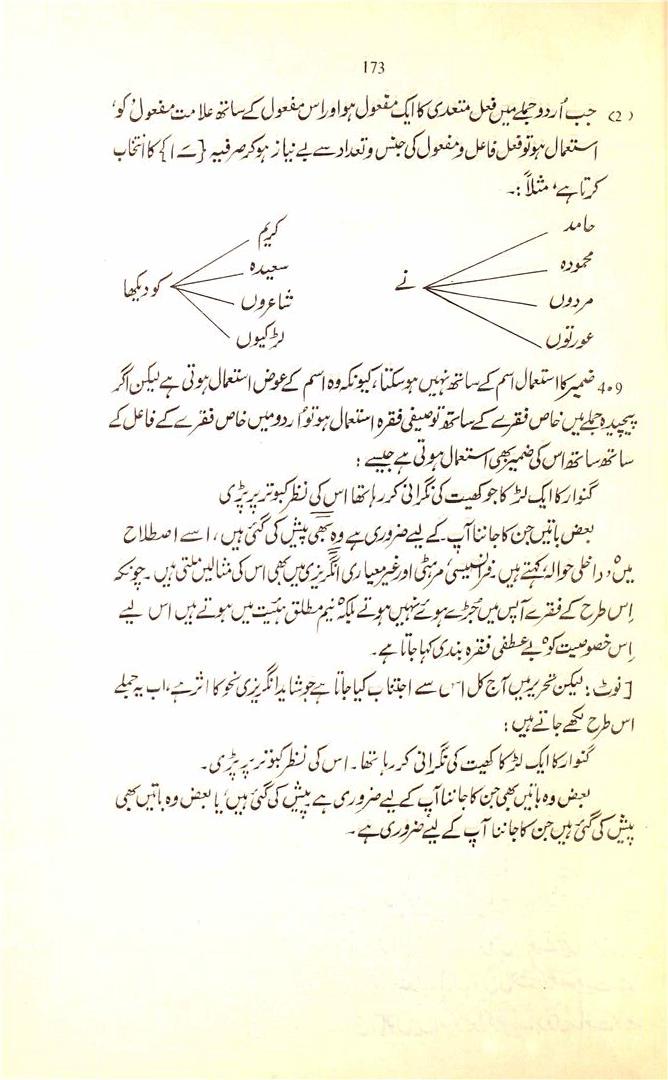 173
(2) جب اُردو جملے میں فعل متعدی کا ایک مفعول ہو اور اس مفعول کے ساتھ علامت مفعول 'کو'
استعمال ہو تو فعل فاعل و مفعول کی جنس و تعداد سے بے نیاز ہو کر صرفیہ {ے ا} کا انتخاب
کرتا ہے، مثلاً :۔
حامد
محمودہ
مردوں
عورتوں
نے
کریم
سعیدہ
شاعروں
لڑکیوں
کو دیکھا
4.9 ضمیر کا استعمال اسم کے ساتھ نہیں ہو سکتا، کیونکہ وہ اسم کے عوض استعمال ہوتی ہے لیکن اگر
پیچیدہ جملے میں خاص فقرے کے ساتھ توصیفی فقرہ استعمال ہو تو اُردو میں خاص فقرے کے فاعل کے
ساتھ ساتھ اس کی ضمیر بھی استعمال ہوتی ہے جیسے :
گنوار کا ایک لڑکا جو کھیت کی نگرانی کر رہا تھا اس کی نظر کبوتر پر پڑی
بعض باتیں جن کا جاننا آپ کے لیے ضروری ہے وہ بھی پیش کی گئی ہیں، اسے اصطلاح
میں "داخلی حوالہ" کہتے ہیں۔ فرانسیسی، مرہٹی اور غیر معیاری انگریزی میں بھی اس کی مثالیں ملتی ہیں۔ چونکہ
اِس طرح کے فقرے آپس میں جُڑے ہوئے نہیں ہوتے بلکہ نیم مطلق ہئیت میں ہوتے ہیں اس لیے
اِس خصوصیت کو "بے عطفی فقرہ بندی کہا جاتا ہے۔
[نوٹ : لیکن تحریر میں آج کل اس سے اجتناب کیا جاتا ہے جو شاید انگریزی نحو کا اثر ہے، اب یہ جملے
اس طرح لکھے جاتے ہیں :
گنوار کا ایک لڑکا کھیت کی نگرانی کر رہا تھا۔ اس کی نظر کبوتر پر پڑی۔
بعض وہ باتیں بھی جن کا جاننا آپ کے لیے ضروری ہے پیش کی گئی ہیں، یا بعض وہ باتیں بھی
پیش کی گئی ہیں جن کا جاننا آپ کے لیے ضروری ہے۔